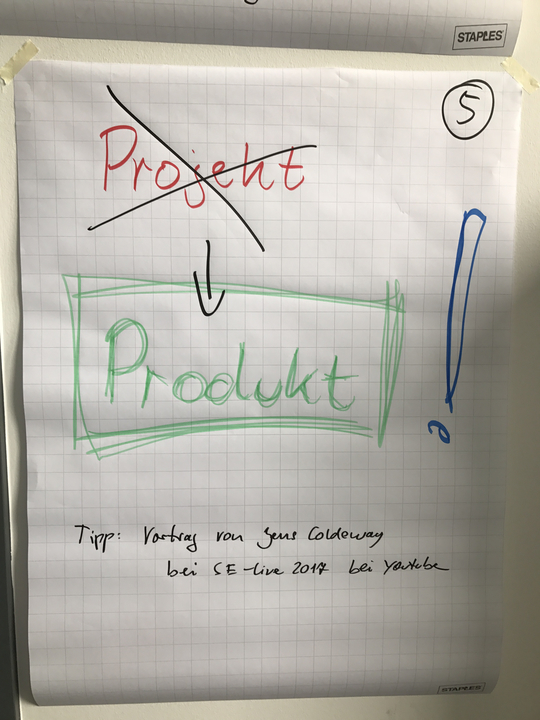 STAPLES
5
Projekt
Produkt
Tipp: Vortrag von Jens Coldeway
bei SE-live 2017 bei Youtube
STAPLES